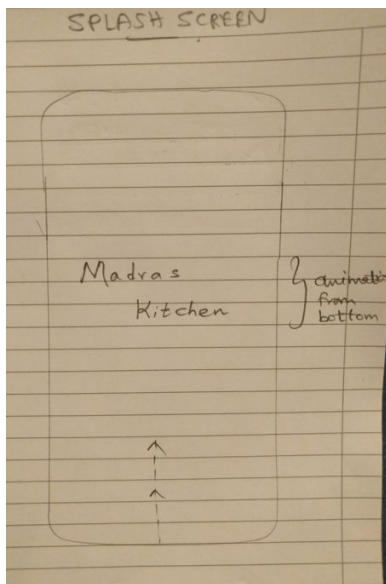 SPLASH SCREEN
Madras
Kitchen
animation
from
bottom